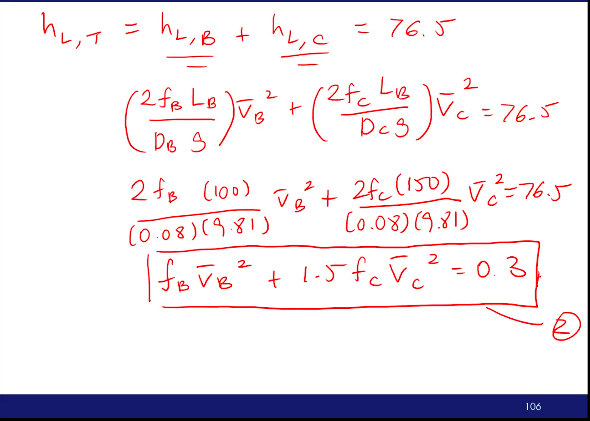 h_{L,T} = h_{L,B} + h_{L,C} = 76.5
(2 f_B L_B / D_B g) V̄_B² + (2 f_C L_B / D_C g) V̄_C² = 76.5
2 f_B (100) / (0.08)(9.81) V̄_B² + 2 f_C (150) / (0.08)(9.81) V̄_C² = 76.5
f_B V̄_B² + 1.5 f_C V̄_C² = 0.3
②
106